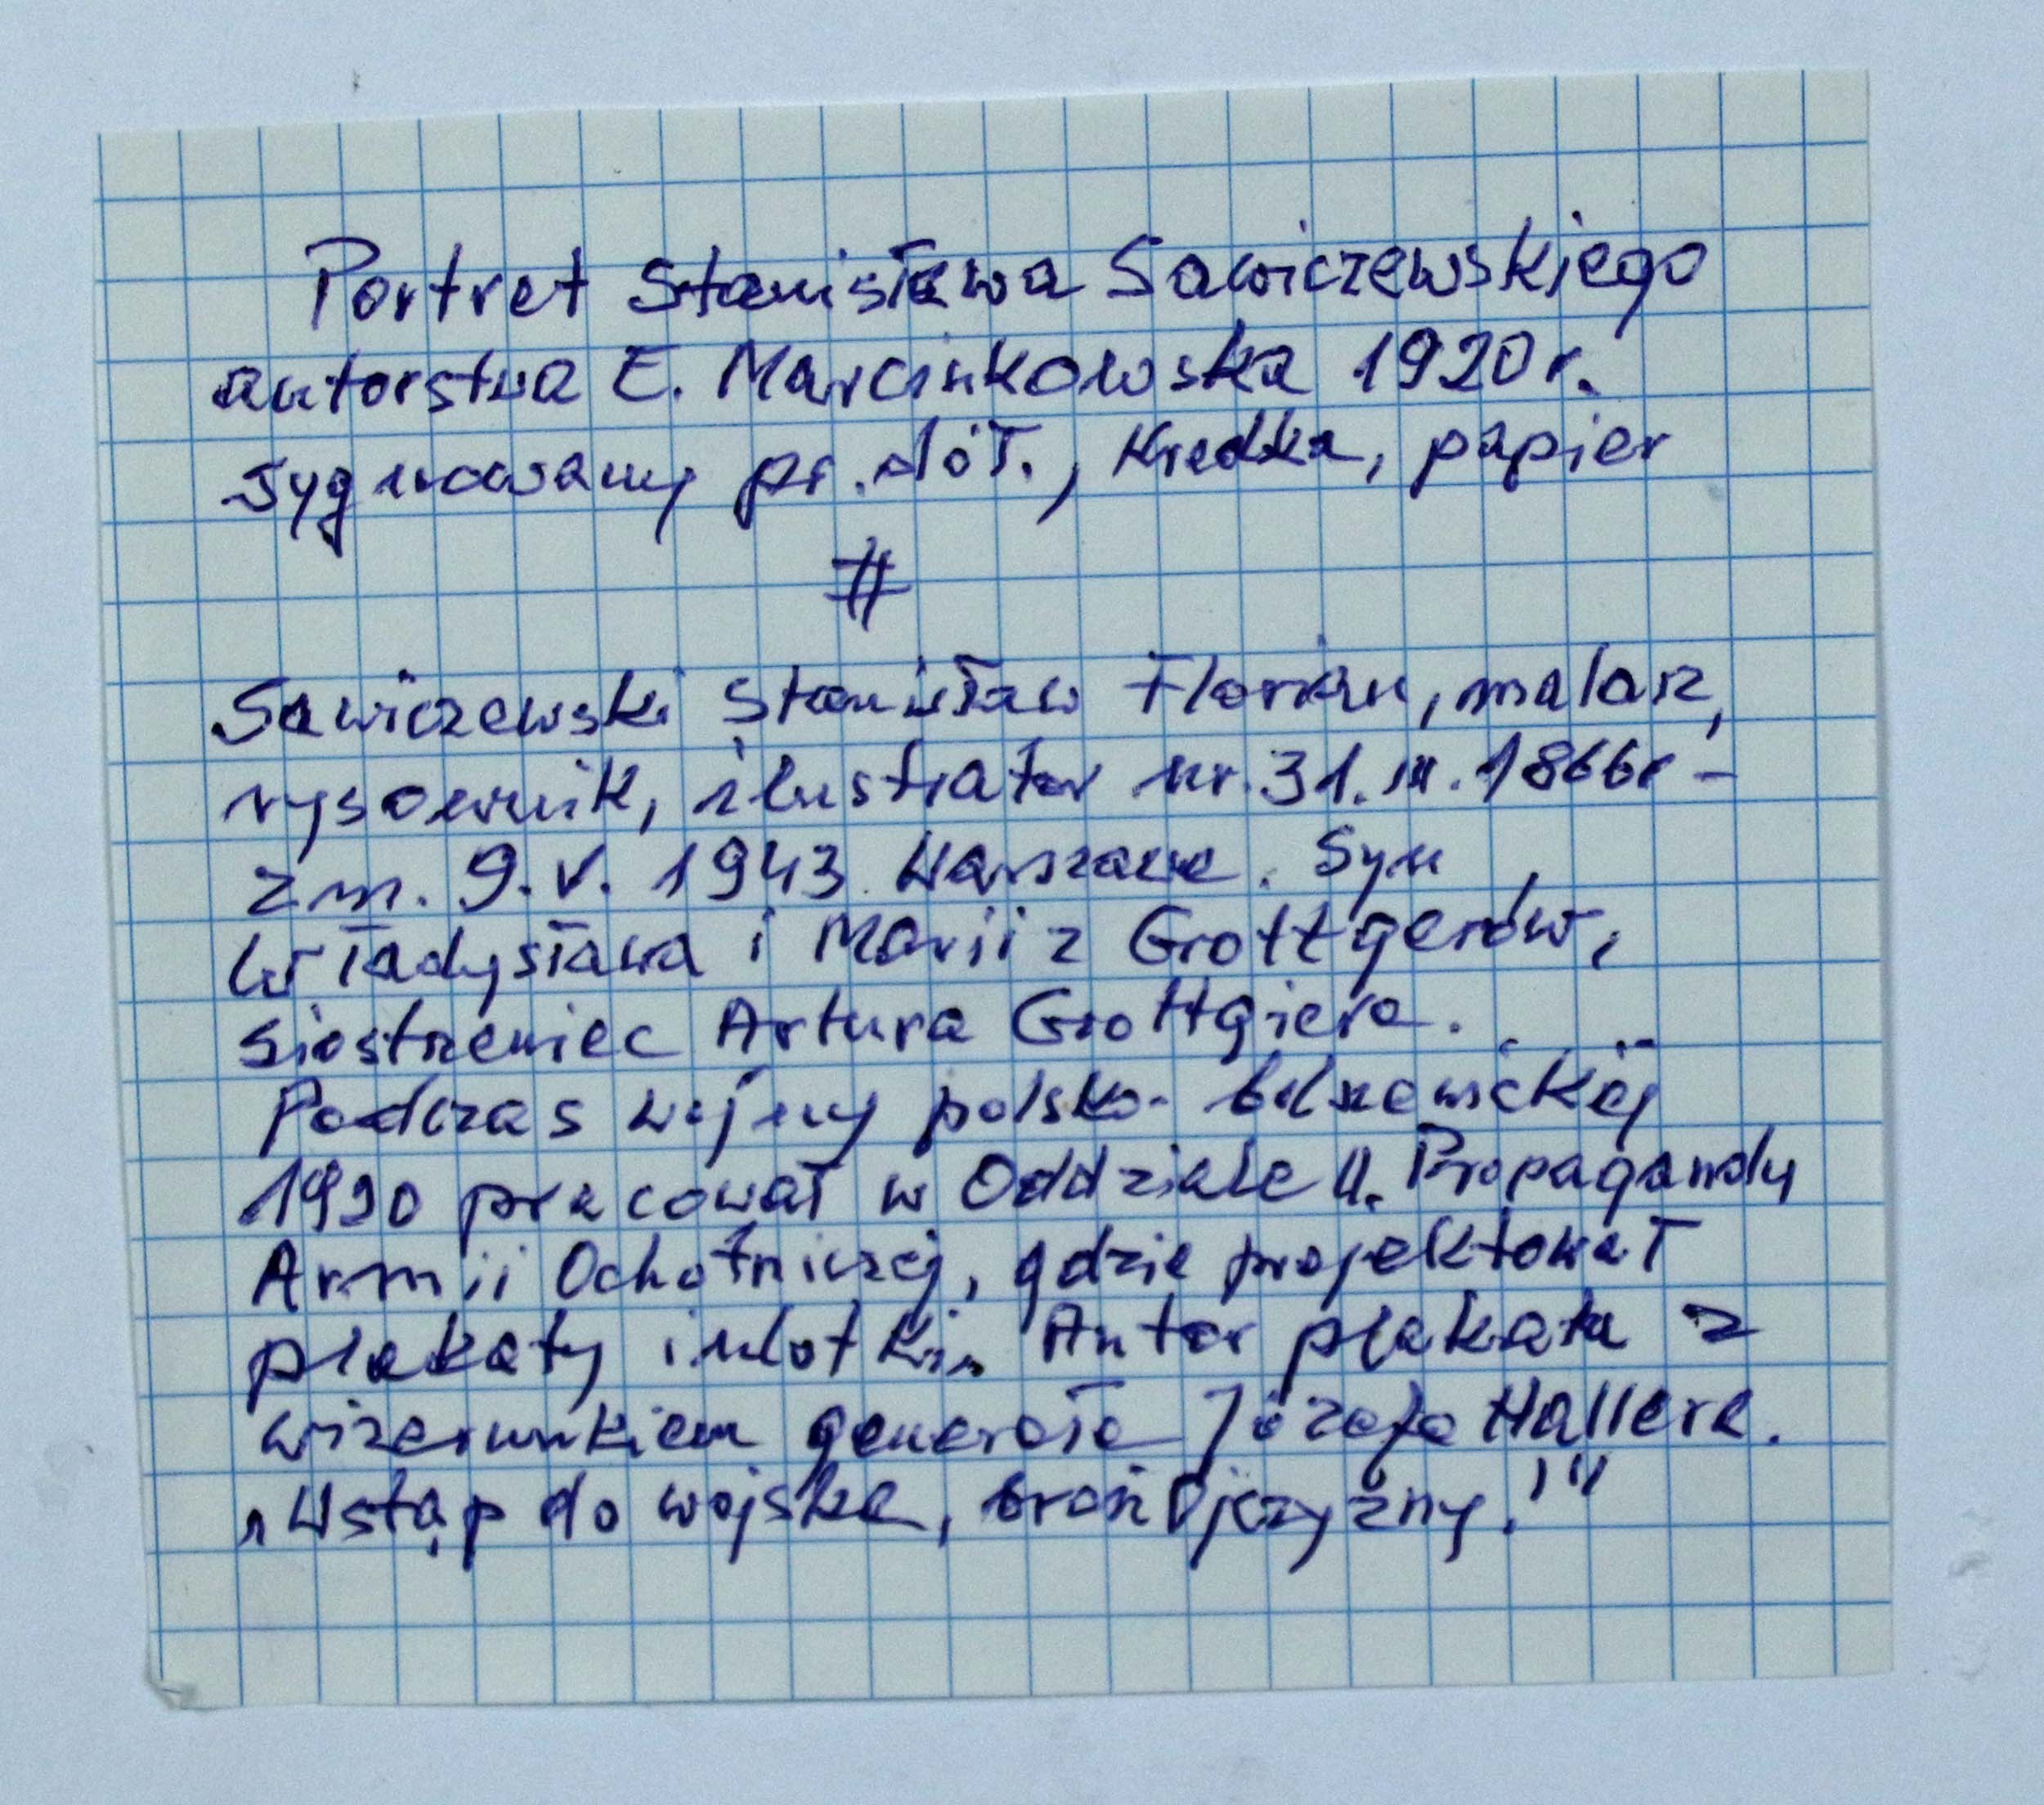 Portret Stanisława Sawiczewskiego
autorstwa E. Marcinkowska 1920 r.
sygnowany pr. dół., kredka, papier
#
Sawiczewski Stanisław Florian, malarz,
rysownik, ilustrator ur. 31. III. 1866r –
zm. 9. V. 1943 Warszawa. Syn
Władysława i Marii z Grottgerów,
siostrzeniec Artura Grottgiera.
Podczas wojny polsko-bolszewickiej
1920 pracował w Oddziale II. Propagandy
Armii Ochotniczej, gdzie projektował
plakaty i ulotki. Autor plakatu z
wizerunkiem generała Józefa Hallera.
„Wstąp do wojska, broń Ojczyzny!”